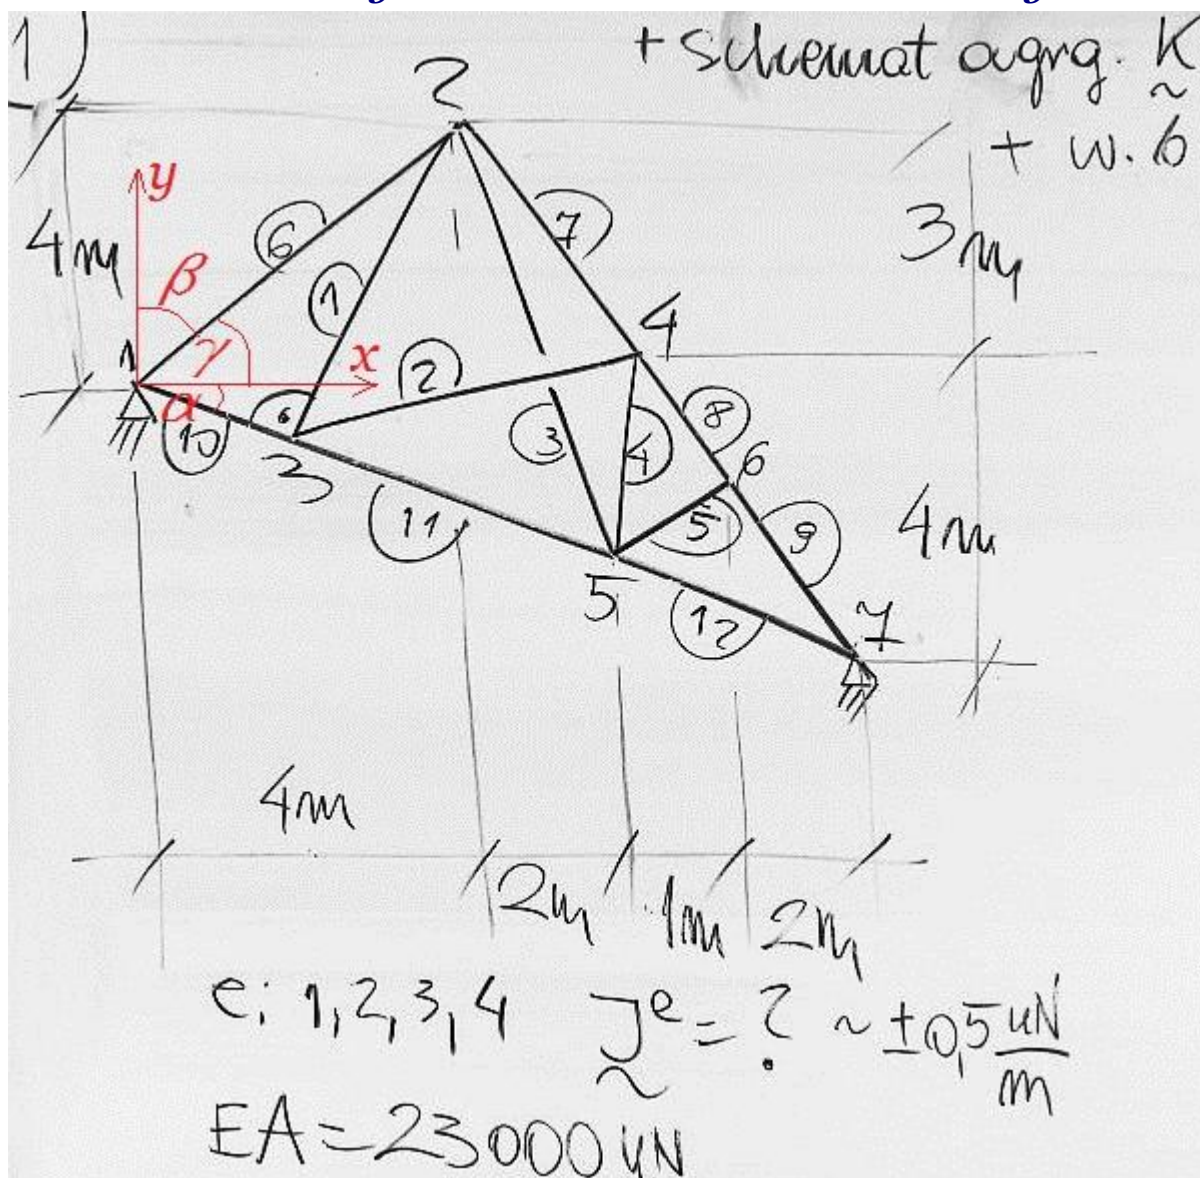 1)
+ schemat agrg. K
~
+ w. b
2
y
4m
β
6
7
3m
1
γ
x
1
4
2
α
10
3
3
4
8
6
11
5
9
4m
5
12
7
4m
2m 1m 2m
e: 1,2,3,4 J^e = ? ~ ±0,5 kN/m
~
EA = 23000 kN